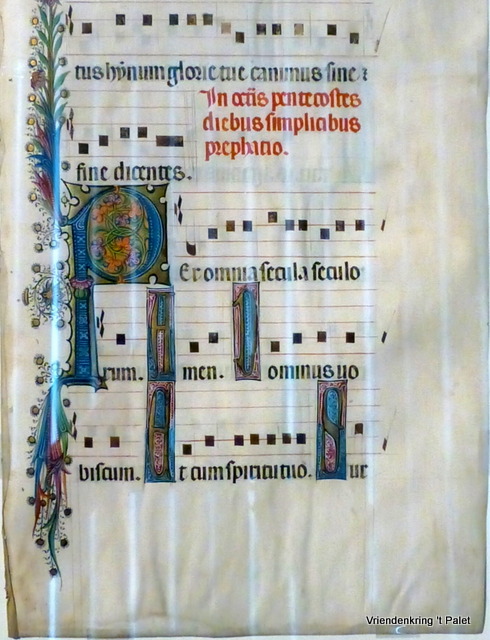 tus hymnum glorie tue canimus sine
In octis pentecostes
diebus simplicibus
prephatio.
fine dicentes.
Per omnia secula seculo
rum. Amen. Dominus vo
biscum. Et cum spiritu tuo. Sur
Vriendenkring 't Palet